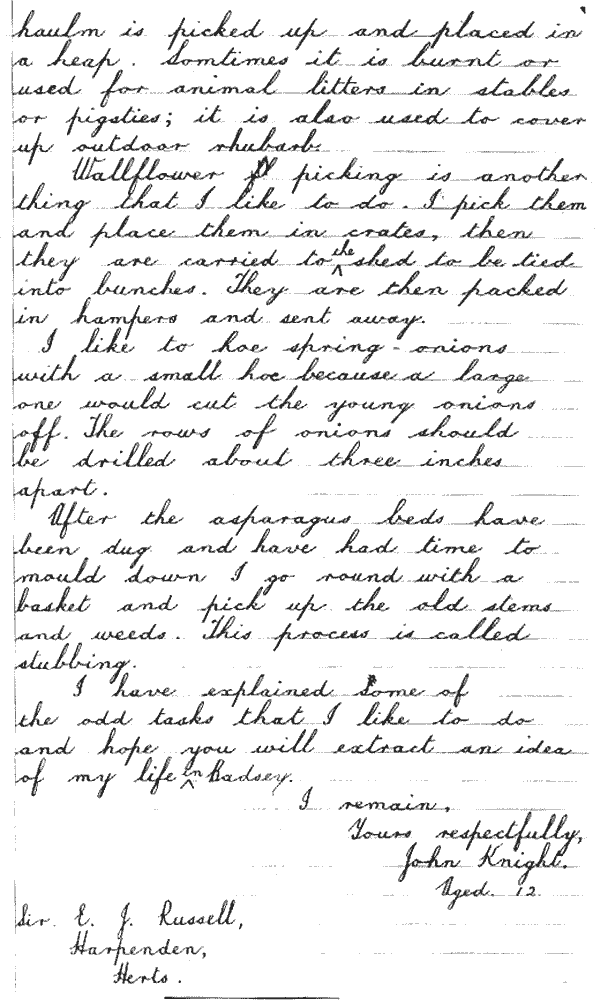 haulm is picked up and placed in
a heap. Somtimes it is burnt or
used for animal litters in stables
or pigsties; it is also used to cover
up outdoor rhubarb.
Wallflower picking is another
thing that I like to do. I pick them
and place them in crates, then
they are carried to the shed to be tied
into bunches. They are then packed
in hampers and sent away.
I like to hoe spring-onions
with a small hoe because a large
one would cut the young onions
off. The rows of onions should
be drilled about three inches
apart.
After the asparagus beds have
been dug and have had time to
mould down I go round with a
basket and pick up the old stems
and weeds. This process is called
stubbing.
I have explained some of
the odd tasks that I like to do
and hope you will extract an idea
of my life in Badsey.
I remain,
Yours respectfully,
John Knight.
Aged. 12.
Sir. E. J. Russell,
Harpenden,
Herts.